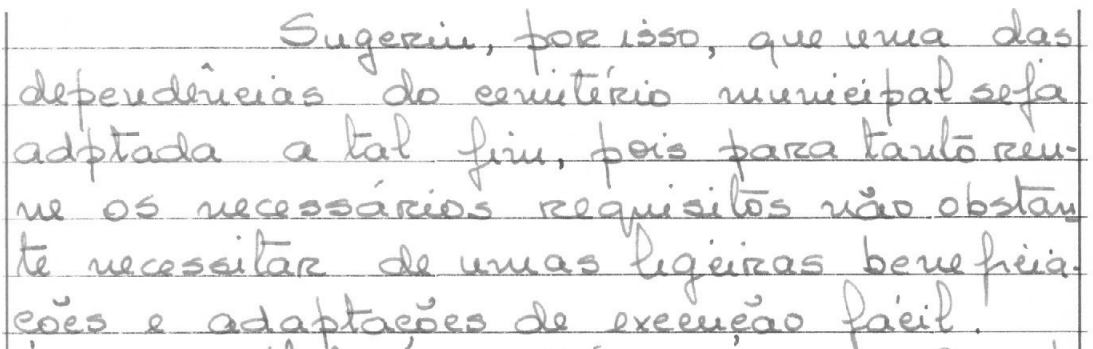 Sugeriu, por isso, que uma das
dependências do cemitério municipal seja
adptada a tal fim, pois para tanto reu-
ne os necessários requisitos não obstan
te necessitar de umas ligeiras beneficia-
ções e adaptações de execução fácil.